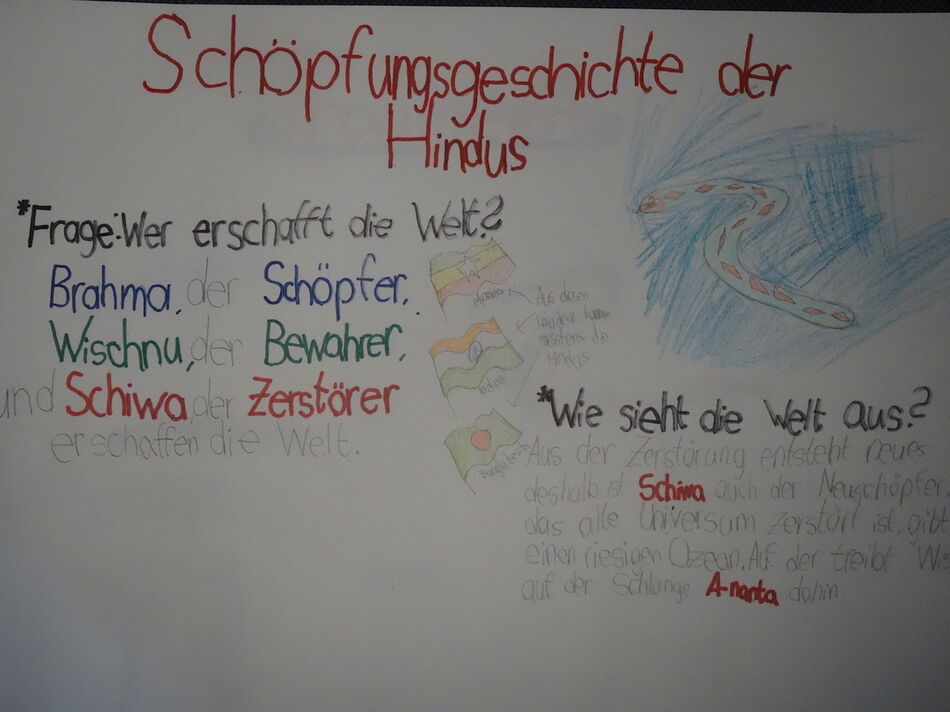 Schöpfungsgeschichte der
Hindus
*Frage: Wer erschafft die Welt?
Brahma, der Schöpfer,
Wischnu, der Bewahrer,
und Schiwa, der Zerstörer
erschaffen die Welt.
Aus diesen
Ländern
meistens die
Hindus
Indien
Bangladesch
*Wie sieht die Welt aus?
Aus der Zerstörung entsteht neues
deshalb ist Schiwa auch der Neuschöpfer.
das alte Universum zerstört ist, gibt
einen riesigen Ozean. Auf der treibt
auf der Schlange A-nanta dahin.